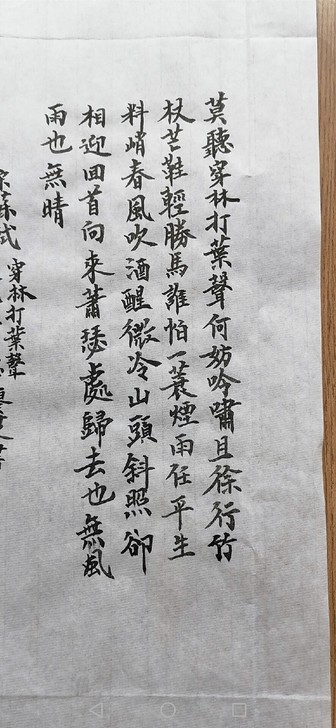 莫聽穿林打葉聲何妨吟嘯且徐行竹
杖芒鞋輕勝馬誰怕一蓑煙雨任平生
料峭春風吹酒醒微冷山頭斜照卻
相迎回首向來蕭瑟處歸去也無風
雨也無晴
蘇軾
穿林打葉聲